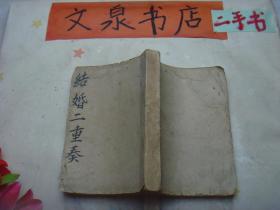 文泉书店
二手书
結婚二重奏